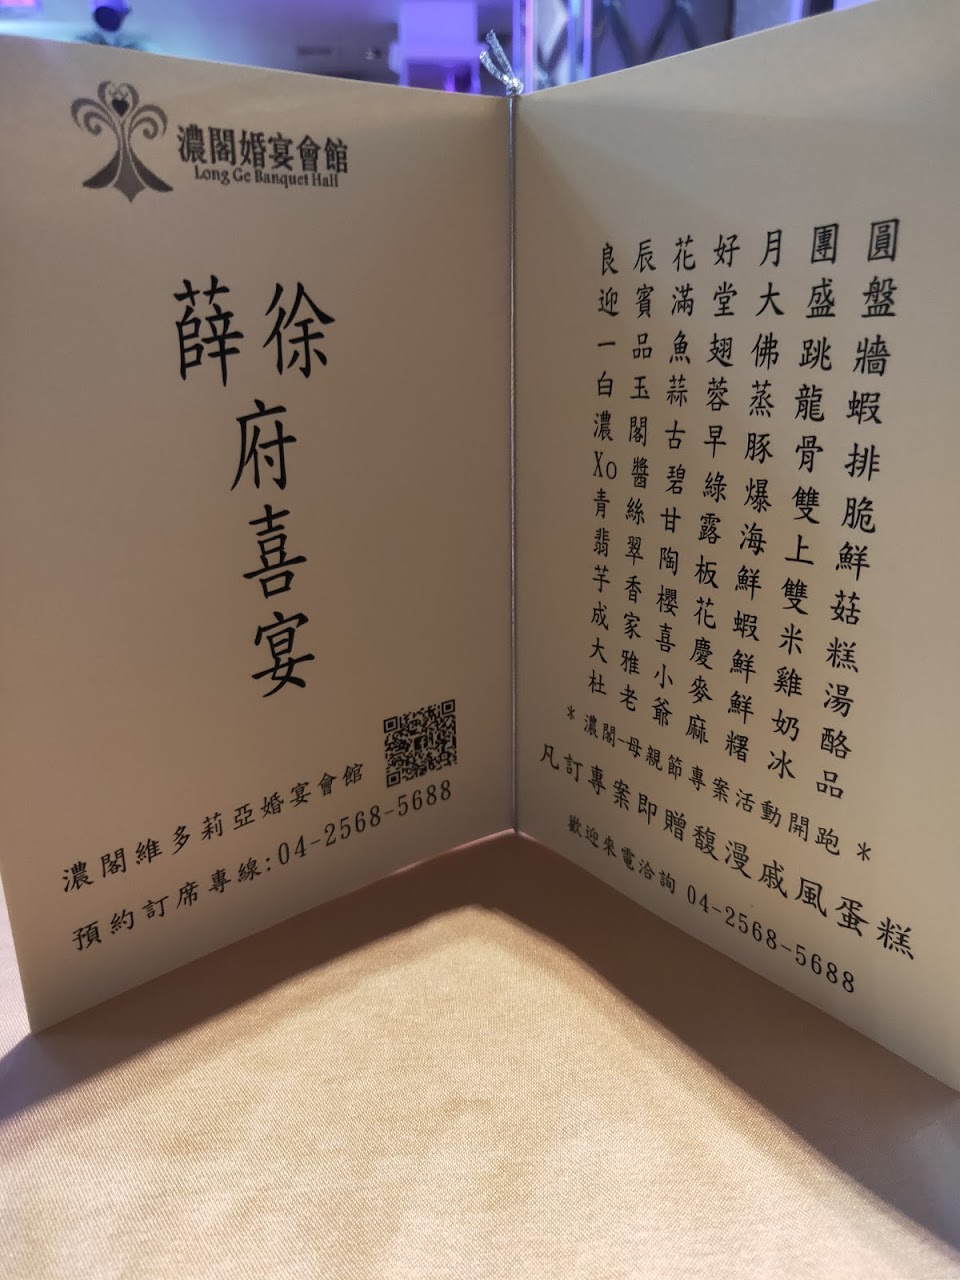 濃閣婚宴會館
Long Ge Banquet Hall
徐
薛
府
喜
宴
濃閣維多莉亞婚宴會館
預約訂席專線:04-2568-5688
良辰花好月團圓
迎賓滿堂大盛盤
一品魚翅佛跳牆
白玉蒜蓉蒸龍蝦
濃閣古早豚骨排
Xo醬碧綠爆雙脆
青絲甘露海上鮮
翡翠陶板鮮雙菇
芋香櫻花蝦米糕
成家喜慶鮮雞湯
大雅小麥鮮奶酪
杜老爺麻糬冰品
*濃閣-母親節專案活動開跑*
凡訂專案即贈馥漫戚風蛋糕
歡迎來電洽詢 04-2568-5688